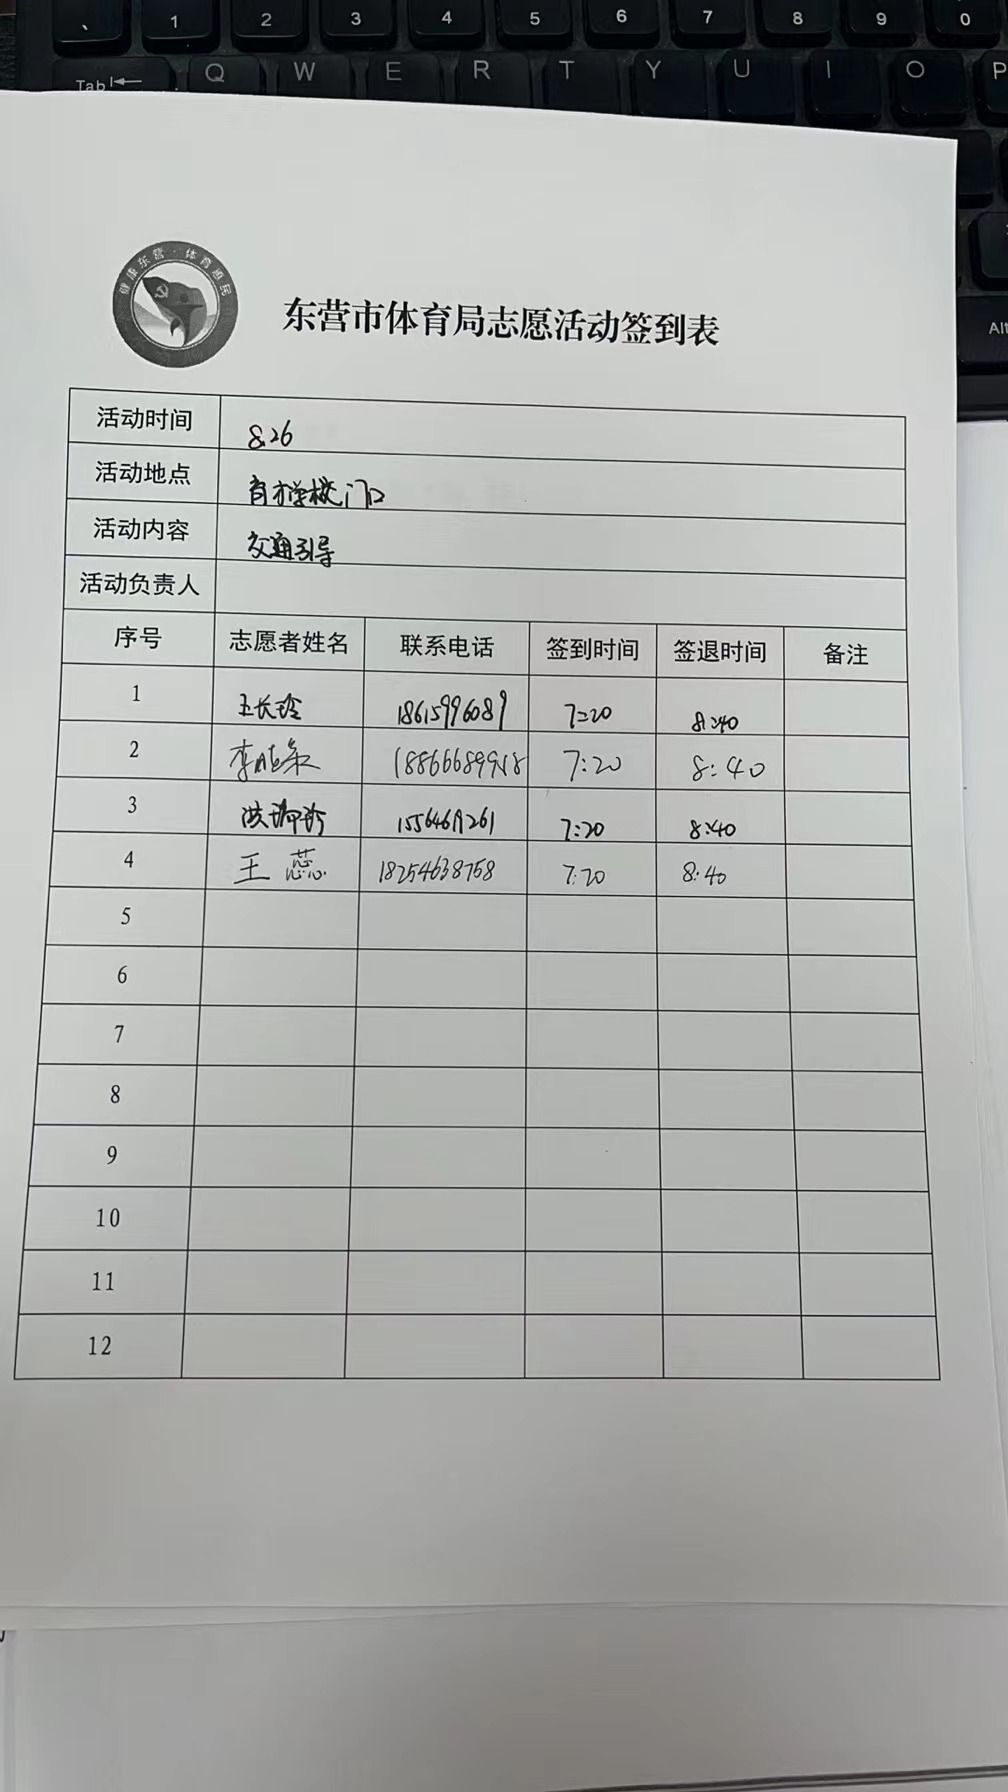 、 1 2 3 4 5 6 7 8 9 0
Tab Q W E R T Y U I O P
Alt
健康东营·体育惠民
东营市体育局志愿活动签到表
活动时间 8.26
活动地点 育才学校门口
活动内容 交通引导
活动负责人
序号 志愿者姓名 联系电话 签到时间 签退时间 备注
1 王长玲 18615996089 7:20 8:40
2 李 7:20 8:40
3 7:20 8:40
4 王蕊 18254638758 7:20 8:40
5
6
7
8
9
10
11
12